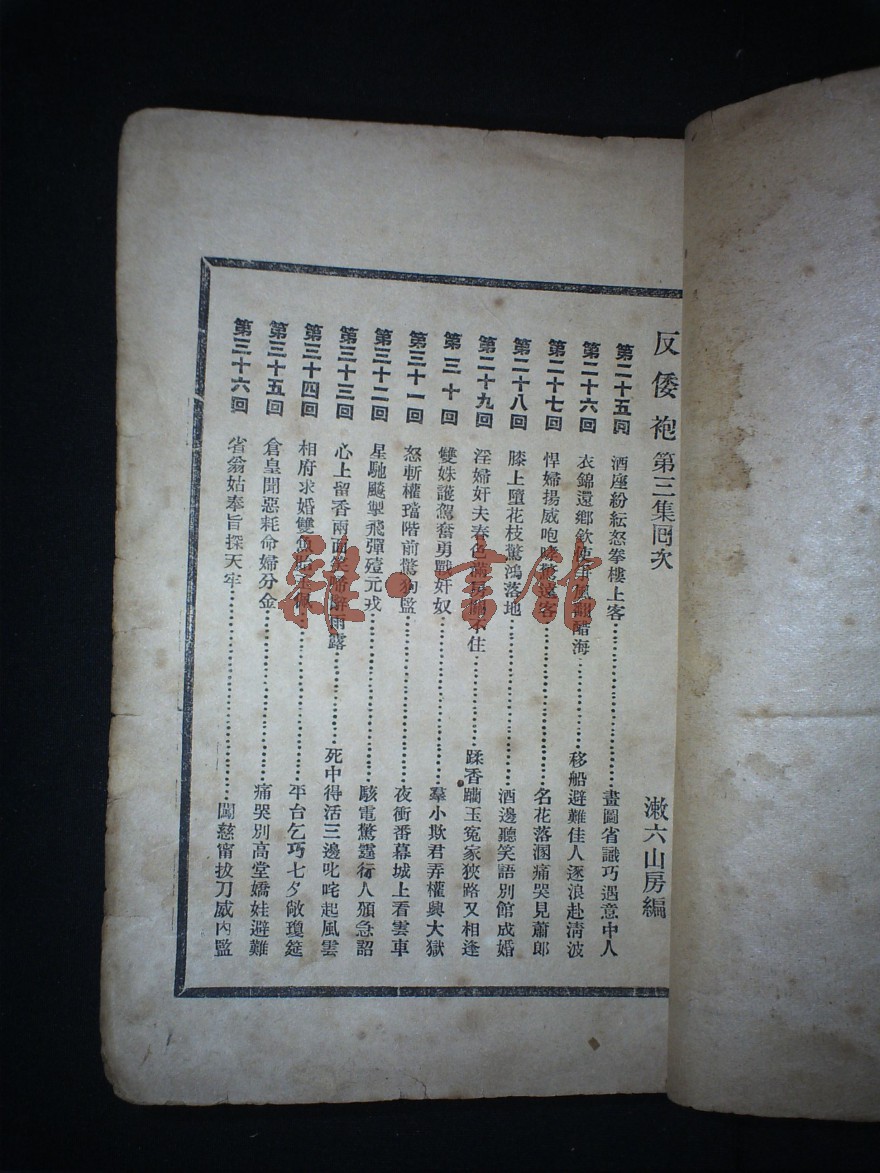 反倭袍第三集囘次
漱六山房編
第二十五囘 酒座紛紜怒拳樓上客……畫圖省識巧遇意中人
第二十六回 衣錦還鄉欽使 醋海……移船避難佳人逐浪赴清波
第二十七回 悍婦揚威咆哮驚遠客……名花落溷痛哭見蕭郎
第二十八回 膝上墮花枝驚鴻落地……酒邊聽笑語別館成婚
第二十九回 淫婦奸夫春色滿 不住……蹂香躪玉冤家狹路又相逢
第三十回 雙姝護駕奮勇戰奸奴……羣小欺君弄權興大獄
第三十一回 怒斬權璫階前驚狗監……夜衝番幕城上看雲車
第三十二回 星馳飈掣飛彈殪元戎……駭電驚霆行人頒急詔
第三十三回 心上留香兩面 雨露……死中得活三邊叱咤起風雲
第三十四回 相府求婚雙 佩……平台乞巧七夕敞瓊筵
第三十五回 倉皇聞惡耗命婦分金……痛哭別高堂嬌娃避難
第三十六回 省翁姑奉旨探天牢……闖慈甯拔刀威內監
雜·書館